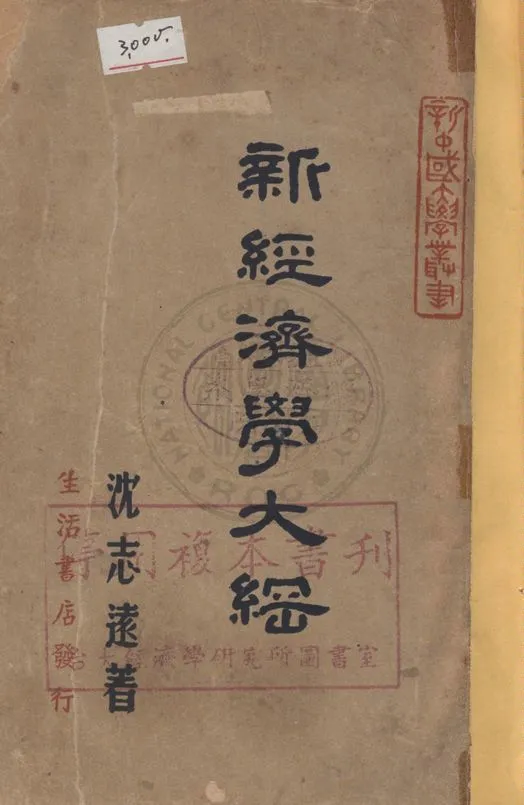 3,005.
新中國大學叢書
新經濟學大綱
沈志遠著
生活書店發行
NATIONAL CENTRAL LIBRARY
R.O.C.
複本書刊
大經濟學研究所圖書室